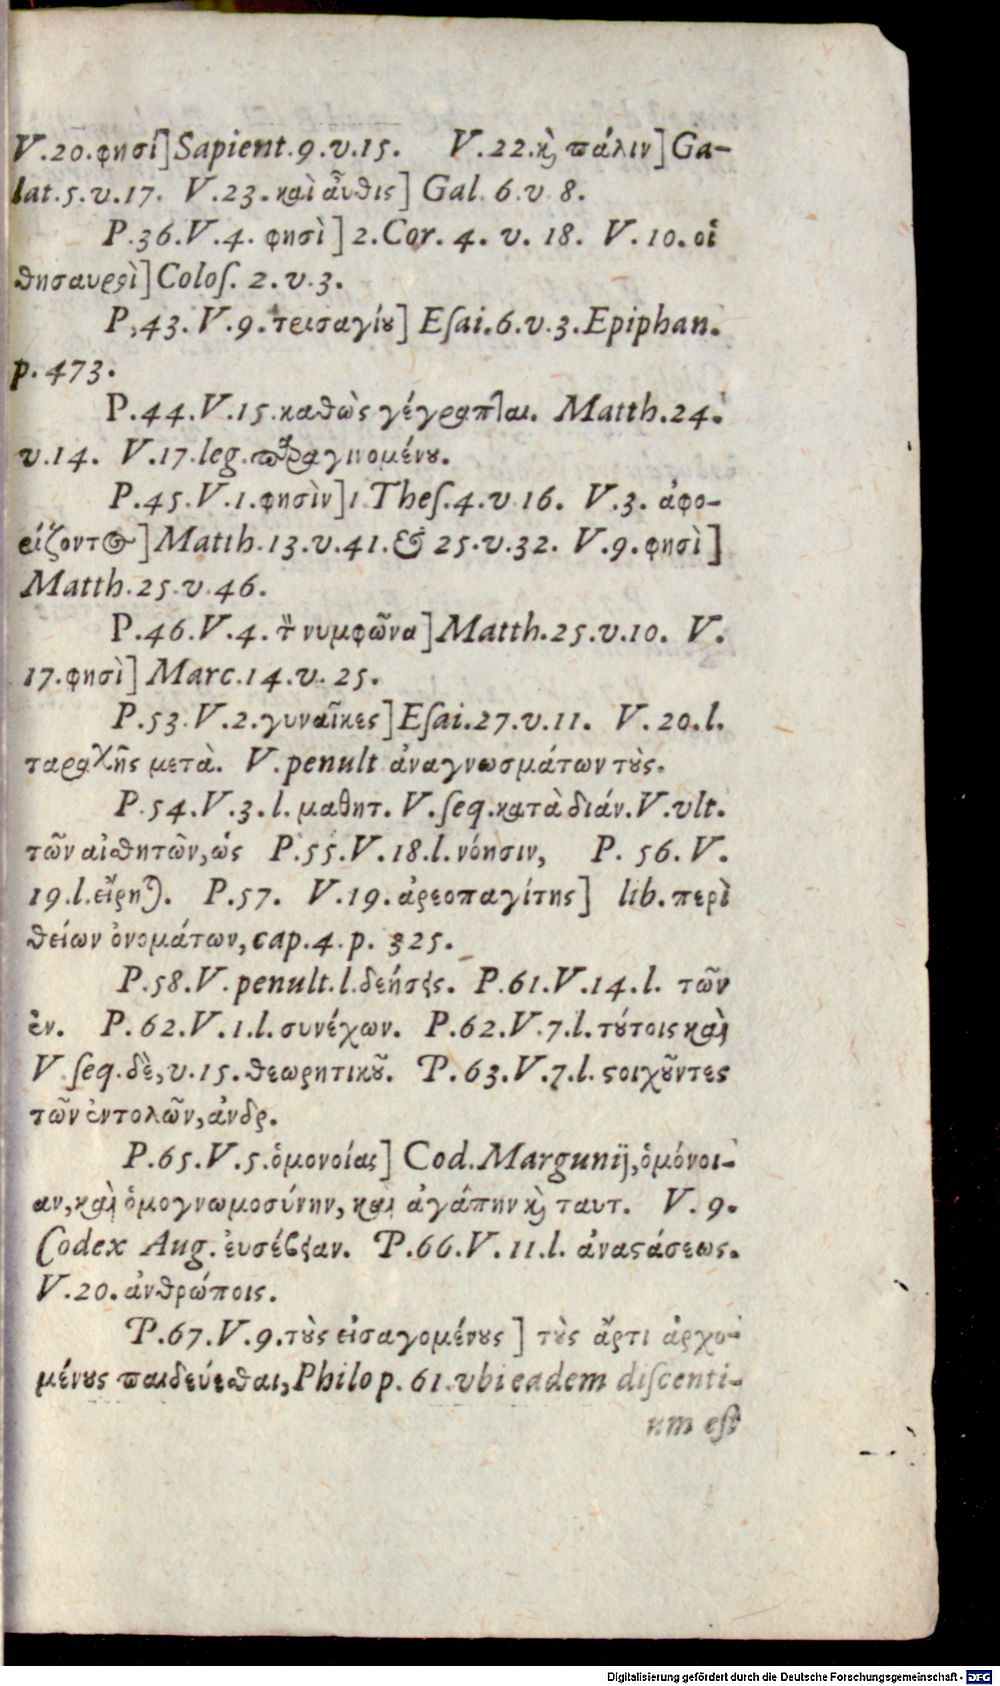 V.20.φησί] Sapient.9.v.15. V.22.ϗ πάλιν] Ga-
lat.5.v.17. V.23.καὶ αὖθις] Gal. 6.v 8.
P.36.V.4. φησὶ] 2.Cor. 4. v. 18. V. 10. οἱ
θησαυροὶ] Coloſ. 2. v.3.
P,43. V.9.τρισαγίȣ] Eſai.6.v.3.Epiphan.
p.473.
P.44.V.15.καθὼς γέγραπται. Matth.24.
v.14. V.17.leg.παραγινομένȣ.
P.45.V.1.φησὶν] 1 Theſ.4.v.16. V.3. ἀφο-
ρίζοντος] Matth.13.v.41.& 25.v.32. V.9.φησὶ]
Matth.25.v.46.
P.46.V.4. τὸν νυμφῶνα] Matth.25.v.10. V.
17.φησὶ] Marc.14.v. 25.
P.53.V.2.γυναῖκες] Eſai.27.v.11. V.20.l.
ταραχῆς μετὰ. V.penult ἀναγνωσμάτων τȣ̀ς.
P.54.V.3.l.μαθητ. V.ſeq.κατὰ διάν.V.vlt.
τῶν αἰσθητῶν,ὡς P.55.V.18.l.νόησιν, P. 56.V.
19.l.εἴρηται. P.57. V.19.ἀρεοπαγίτης] lib.περὶ
θείων ὀνομάτων,cap.4.p. 325.
P.58.V.penult.l.δεήσεις. P.61.V.14.l. τῶν
ἐν. P.62.V.1.l.συνέχων. P.62.V.7.l.τȣ́τοις καὶ
V.ſeq.δὲ,v.15.θεωρητικȣ͂. P.63.V.7.l.ϛοιχȣ͂ντες
τῶν ἐντολῶν,ἀνδρ.
P.65.V.5.ὁμονοίας] Cod.Margunij,ὁμόνοι-
αν,καὶ ὁμογνωμοσύνην, καὶ ἀγάπην ϗ ταυτ. V.9.
Codex Aug. ἐυσέβειαν. P.66.V.11.l. ἀναϛάσεως.
V.20.ἀνθρώποις.
P.67.V.9.τȣ̀ς εἰσαγομένȣς] τȣ̀ς ἄρτι ἀρχο-
μένȣς παιδεύεσθαι,Philo p.61.vbi eadem diſcenti-
um eſt
Digitalisierung gefördert durch die Deutsche Forschungsgemeinschaft - DFG